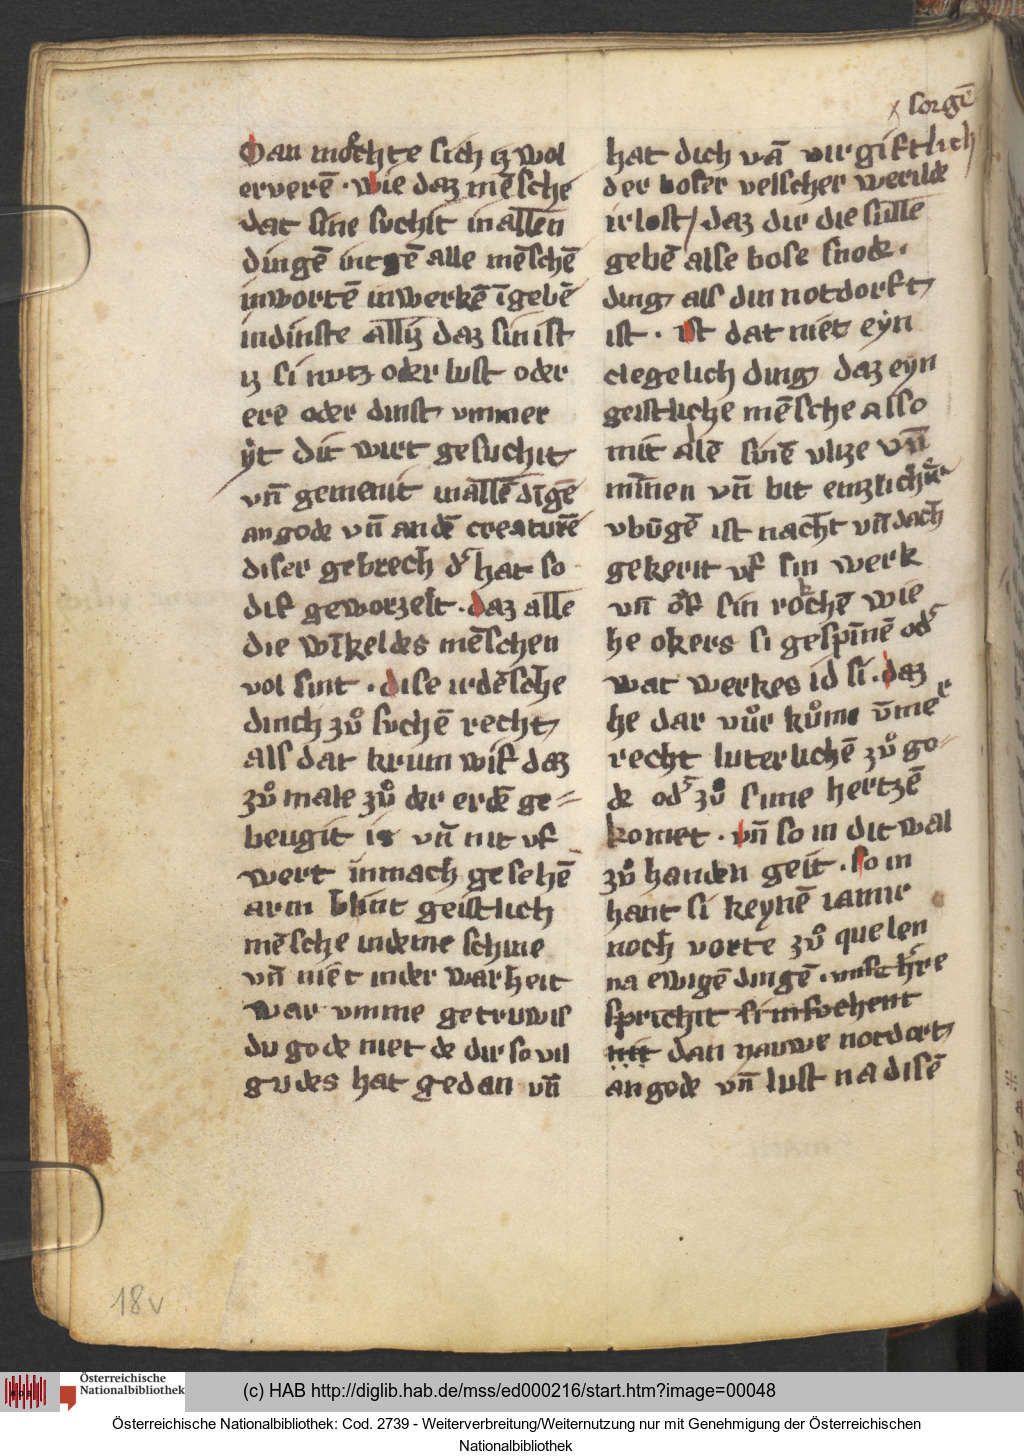 sorgē
Man möchte sich iz wol
erverē · wie daz mēsche
dat sine suchit in allen
dingē intgē alle mēschē
inwortē inwerkē īgebē
indinste alliz daz sin ist
iz si nutz oder lust oder
ere oder dinst vmmer
ẏt dit wirt gesuchit
vn̄ gemenit inallē dīgē
an gode vn̄ an dē creaturē
diser gebrech d' hat so
dif geworzelt · daz alle
die wīkel des mēschen
vol sint · dise irdēsche
dinch zuͦ suchē recht
als dat krum wif daz
zuͦ male zuͦ der erdē ge=
beugit is vn̄ nit vf
wert inmach gesehē
arm blint geistlich
mēsche indeme schine
vn̄ niet inder warheit
war vmme getruwis
du gode niet de dir so vil
gudes hat gedan vn̄
hat dich vā vir giftlich
der boser velscher werilde
irlost / daz dir die sullē
gebē alse bose snode ·
ding als din notdorft
ist · ist dat niet eẏn
clegelich ding daz eyn
geistliche mēsche also
mit alē sinē vlize vn̄
minnen vn̄ bit einzlicher
vbūge ist nacht vn̄ dach
gekerit vf sin werk
vn̄ of sin rockē wie
he okers si gespinē od'
wat werkes id si · daz
he dar vuͦr kuͦme v̄mer
recht luterlichē zuͦ go=
de od' zuͦ sime hertzē
komet · vn̄ so in dit wal
zuͦ handen geit · so in
hant si keynē iamir
noch vorte zuͦ quelen
na ewigē dingē · vnsc h're
sprichit si insuchent
nit dan nauwe notdort
an gode vn̄ lust na disē
18v
Österreichische
Nationalbibliothek
(c) HAB http://diglib.hab.de/mss/ed000216/start.htm?image=00048
Österreichische Nationalbibliothek: Cod. 2739 - Weiterverbreitung/Weiternutzung nur mit Genehmigung der Österreichischen
Nationalbibliothek